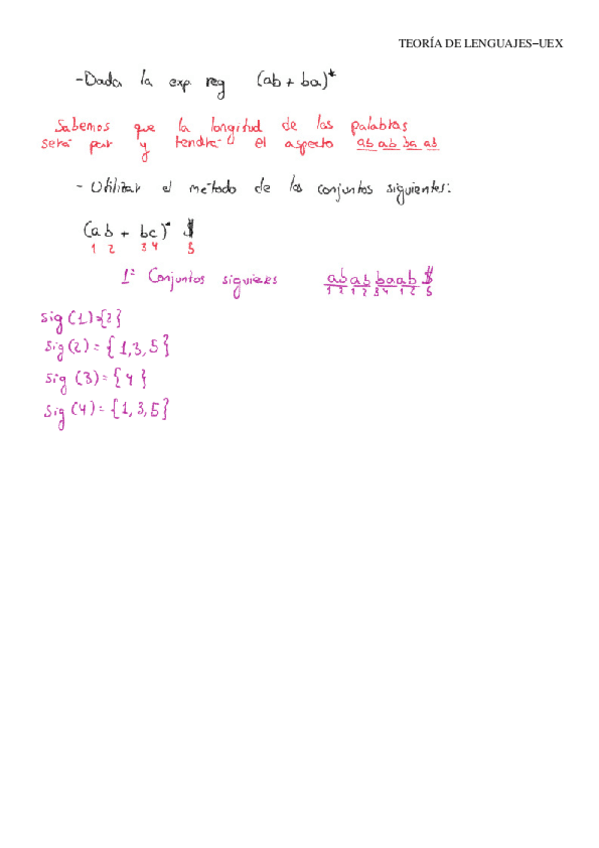 TEORÍA DE LENGUAJES–UEX
-Dada la exp reg (ab + ba)*
Sabemos que la longitud de las palabras
será par y tendrá el aspecto ab ab ba ab
- Utilizar el método de los conjuntos siguientes:
(ab + bc)* $
1 2 3 4 5
1º Conjuntos siguientes ab ab ba ab $
1 2 1 2 3 4 1 2 5
sig (1)={2}
sig(2) = {1,3,5}
sig (3) = {4}
sig (4) = {1,3,5}